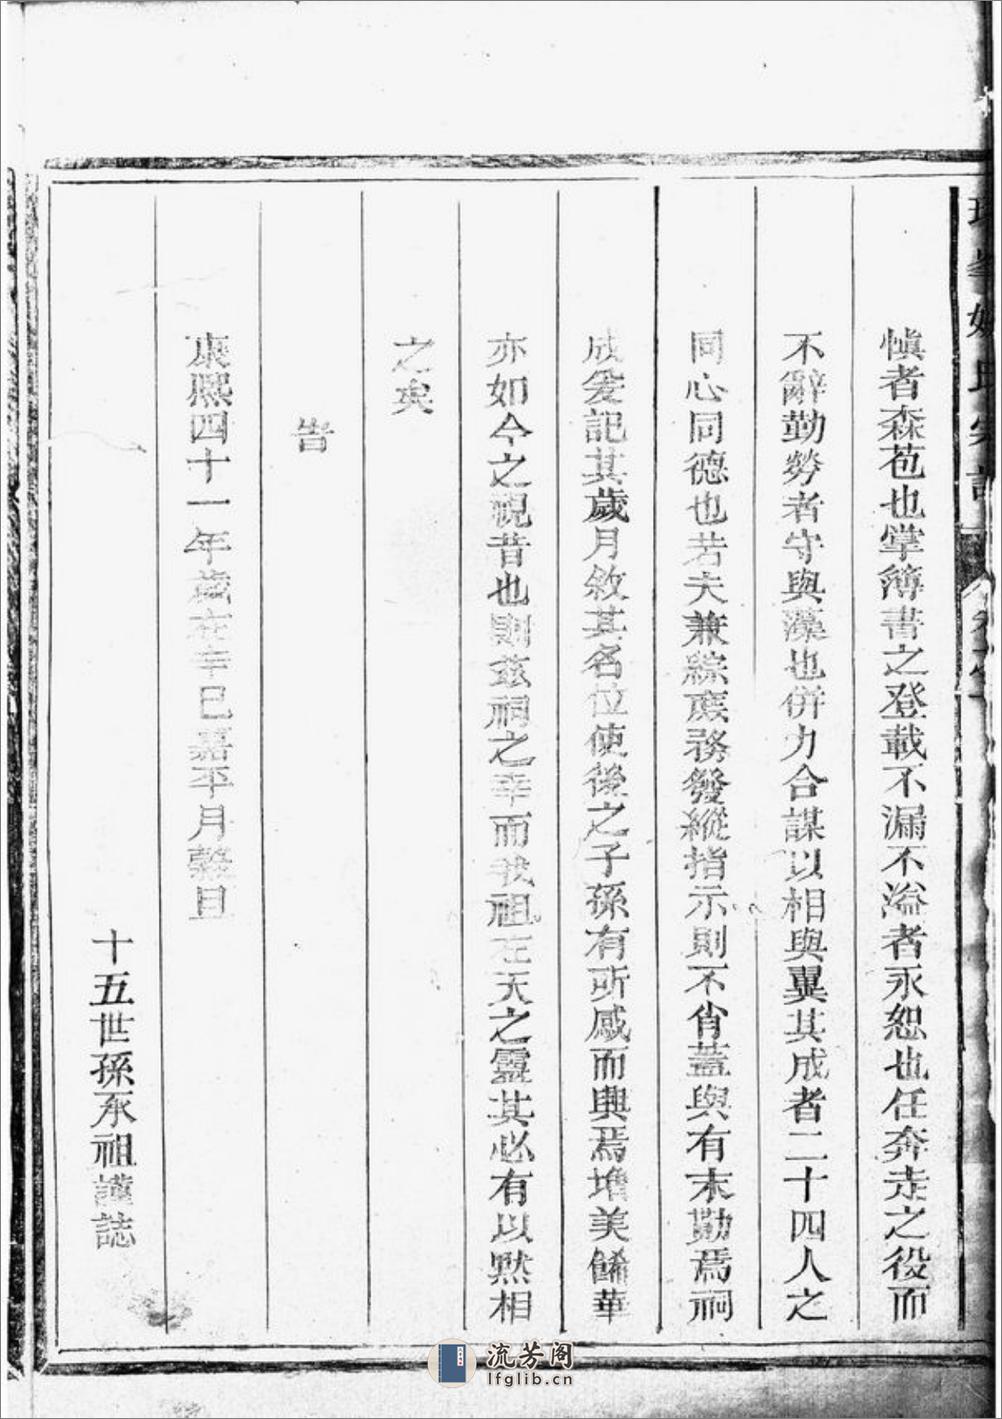 慎者森苞也掌簿書之登載不漏不溢者永恕也任奔走之役而
不辭勤勞者守與藻也併力合謀以相與翼其成者二十四人之
同心同德也若夫兼綜庶務發縱指示則不肖蓋與有末勤焉祠
成爰記其歲月敘其名位使後之子孫有所感而興焉增美餙華
亦如今之視昔也則茲祠之幸而我祖在天之靈其必有以黙相
之矣
告
康熙四十一年歲在辛巳嘉平月穀旦
十五世孫承祖謹誌
流芳阁
lfglib.cn